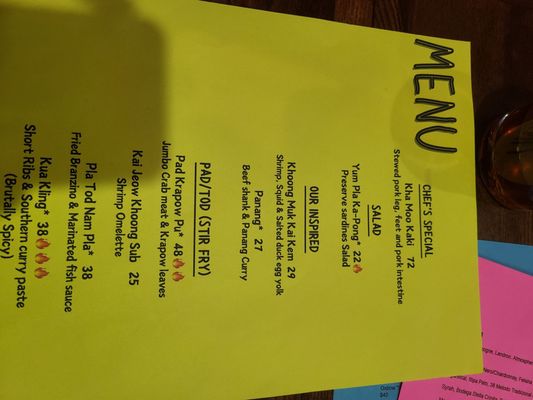 MENU
CHEF'S SPECIAL
Kha Moo Kaki 72
Stewed pork leg, feet and pork intestine
SALAD
Yum Pla Ka-Pong* 22🔥
Preserve sardines Salad
OUR INSPIRED
Khoong Muk Kai Kem 29
Shrimp, Squid & Salted duck egg yolk
Panang* 27
Beef shank & Panang Curry
PAD/TOD (STIR FRY)
Pad Krapow Pu* 48🔥🔥
Jumbo Crab meat & Krapow leaves
Kai Jeow Khoong Sub 25
Shrimp Omelette
Pla Tod Nam Pla* 38
Fried Branzino & Marinated fish sauce
Kua Kling* 38🔥🔥🔥
Short Ribs & Southern curry paste
(Brutally Spicy)